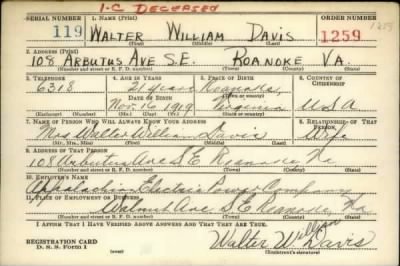 I-C DECEASED
SERIAL NUMBER 1. NAME (Print) ORDER NUMBER
119 WALTER WILLIAM DAVIS 1259 1259
(First) (Middle) (Last)
2. ADDRESS (Print)
108 ARBUTUS AVE S.E. ROANOKE VA.
(Number and street or R. F. D. number) (Town) (County) (State)
3. TELEPHONE 4. AGE IN YEARS 5. PLACE OF BIRTH 6. COUNTRY OF CITIZENSHIP
6318 21 years Roanoke,
DATE OF BIRTH (Town or county)
Nov. 16 1919 Virginia U S A
(Exchange) (Number) (Mo.) (Day) (Yr.) (State or country)
7. NAME OF PERSON WHO WILL ALWAYS KNOW YOUR ADDRESS 8. RELATIONSHIP OF THAT PERSON
Mrs Walter William Davis Wife
(Mr., Mrs., Miss) (First) (Middle) (Last)
9. ADDRESS OF THAT PERSON
108 Arbutus Ave S E Roanoke, Va
(Number and street or R. F. D. number) (Town) (County) (State)
10. EMPLOYER'S NAME
Appalachian Electric Power Company
11. PLACE OF EMPLOYMENT OR BUSINESS
Walnut Ave. S E Roanoke, Va
(Number and street or R. F. D. number) (Town) (County) (State)
I AFFIRM THAT I HAVE VERIFIED ABOVE ANSWERS AND THAT THEY ARE TRUE.
REGISTRATION CARD
D. S. S. Form 1
Walter William Davis
(Registrant's signature)